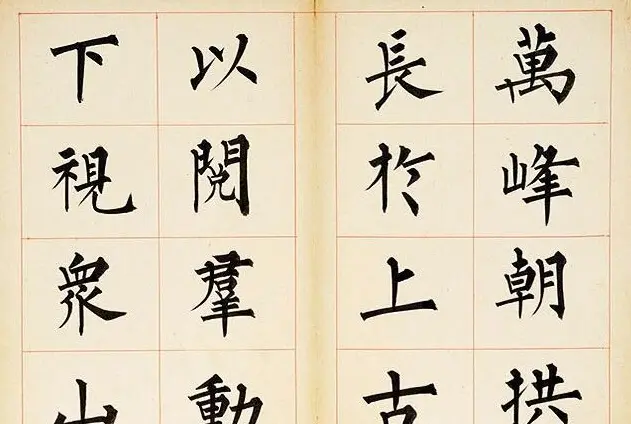 萬峰朝拱
長於上古
以閱羣動
下視衆山